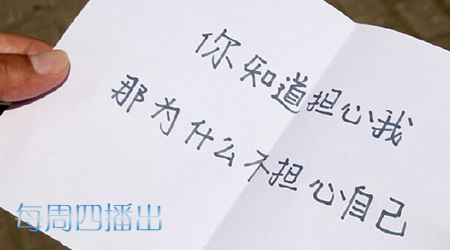 你知道担心我
那为什么不担心自己
每周四播出